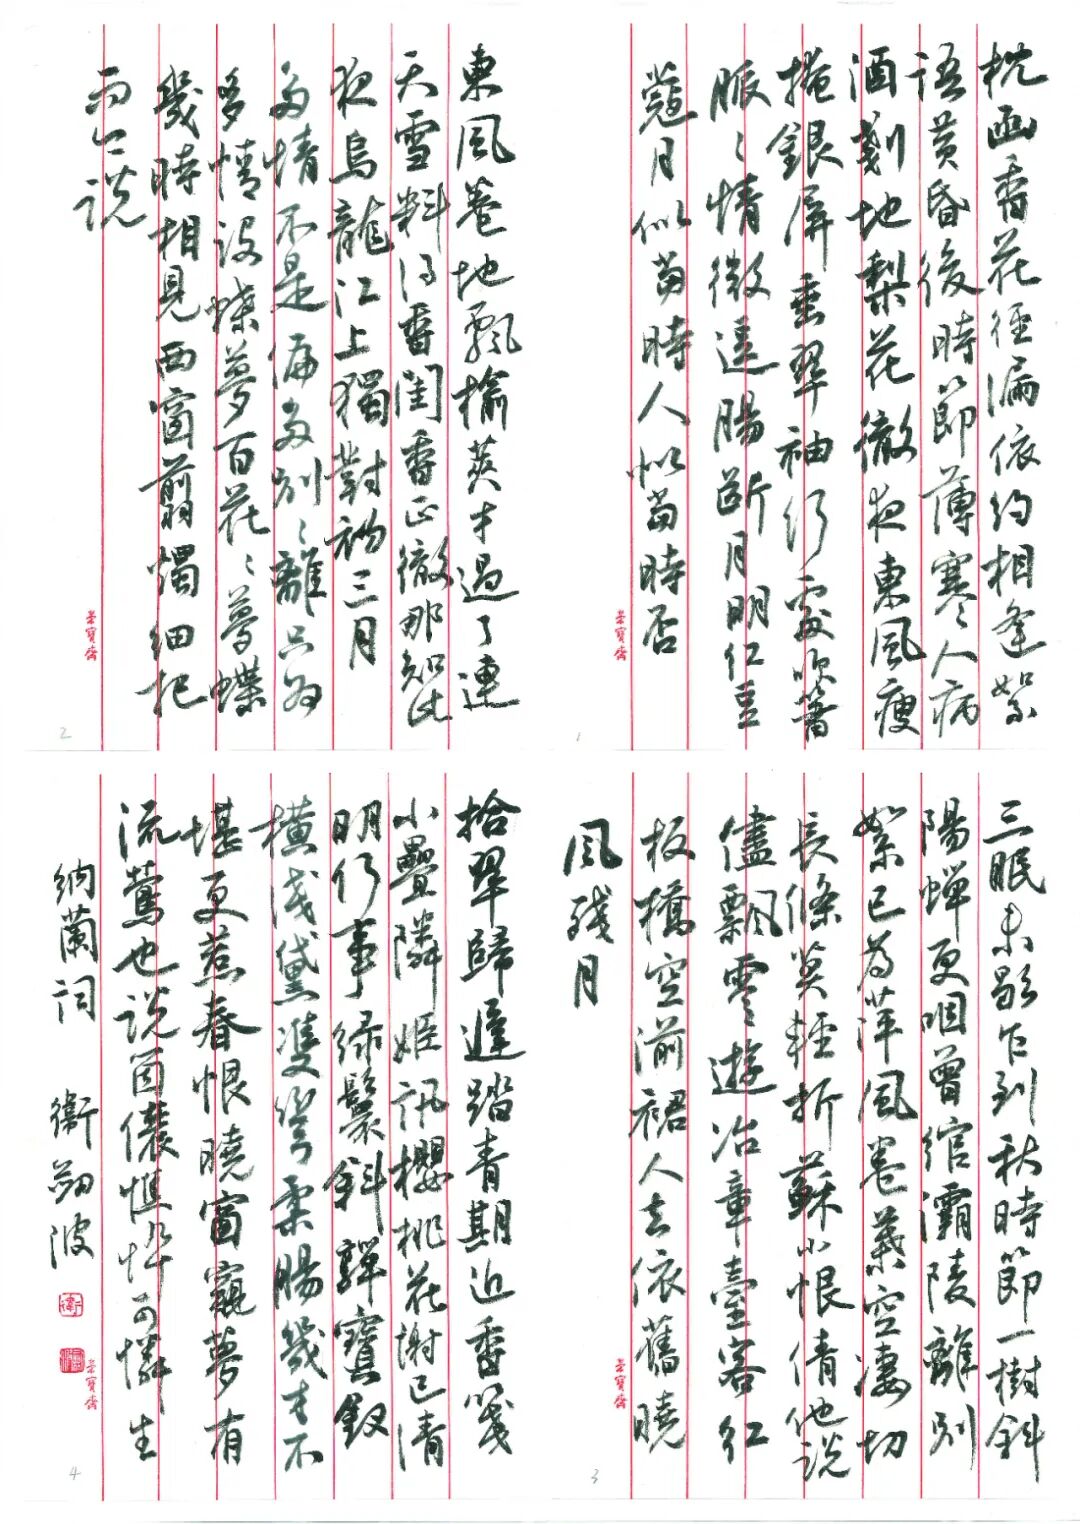 枕函香花徑漏依約相逢絮
語黃昏後時節薄寒人病
酒剗地梨花徹夜東風瘦
掩銀屏垂翠袖何處吹簫
脈〻情微逗腸斷月明紅豆
蔻月似當時人似當時否
榮寶齋
1
東風卷地飄榆莢才過了連
天雪料得香閨香正徹那知此
夜烏龍江上獨對初三月
多情不是偏多別〻離只為
多情設蝶夢百花〻夢蝶
幾時相見西窗剪燭細把
而今說
榮寶齋
2
三眠未歇乍到秋時節一樹斜
陽蟬更咽曾綰灞陵離別
絮已為萍風卷葉空淒切
長條莫輕折蘇小恨倩他說
儘飄零遊冶章臺客紅
板橋空湔裙人去依舊曉
風殘月
榮寶齋
3
拾翠歸遲踏青期近香箋
小疊隣姬訊櫻桃花謝已清
明何事綠鬟斜嚲寶釵
橫淺黛雙彎柔腸幾寸不
堪更惹春恨曉窗窺夢有
流鶯也說個儂憔悴可憐生
納蘭詞 衛 波
榮寶齋
4